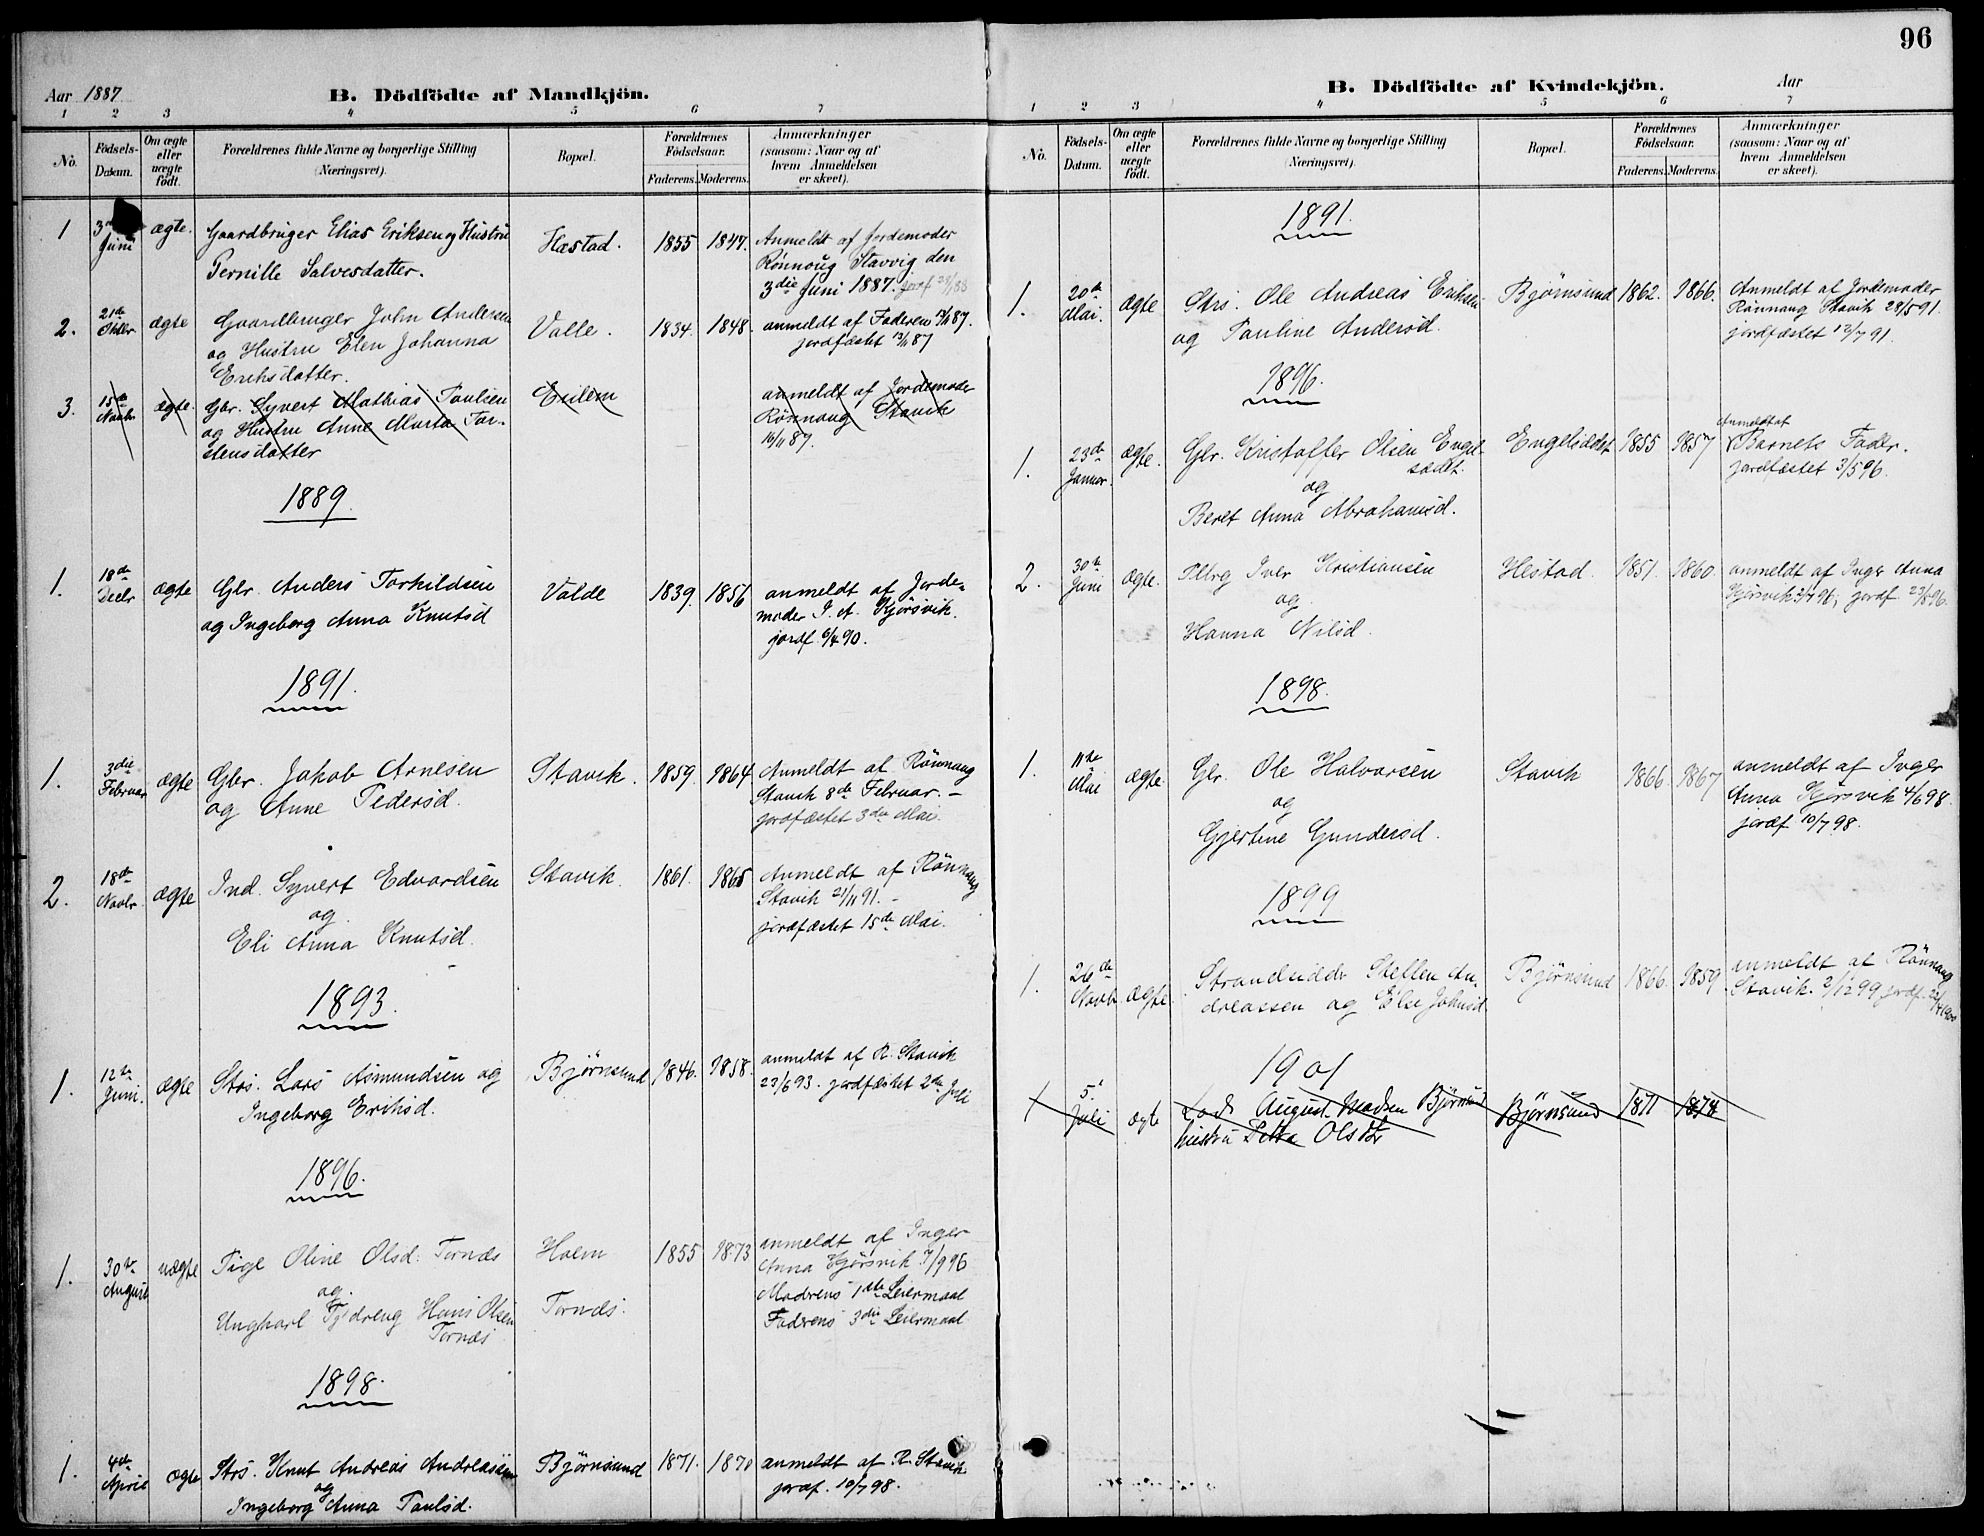 96
Aar 1887
B. Dödfödte af Mandkjön.
1 2 3 4 5 6 7
No.
Födsels-Datum.
Om ægte eller uægte födt.
Forældrenes fulde Navne og borgerlige Stilling
(Næringsvei).
Bopæl.
Forældrenes Födselsaar.
Faderens. Moderens.
Anmærkninger
(saasom: Naar og af
hvem Anmeldelsen
er skeet).
1 Juni ægte. Gaardbruger Elias Eriksen og Hustru Hæstad. 1855 1847. Anmeldt af Jordemoder
Pernille Salvesdatter. Rönnoug Stavvig den
3die Juni 1887.
2. 21de Oktbr ægte Gaardbruger John Andersen Valle. 1834. 1848. anmeldt af Faderen
og Hustru Elen Johanna jordfæstet 13/11 87
Eriksdatter.
3. 15de Novbr ægte. Gbr. Syvert Mathias Paulsen anmeldt af Jordemoder
og Hustru Anne Marta Tor- Rønnaug Stavik
stensdatter 16/11 87.
1889.
1. 18de Decbr ægte Gbr. Anders Torkildsen Valde 1839. 1856 anmeldt af Jorde-
og Ingeborg Anna Knutsd moder I. A. Hjörsvik.
jordf. 6/4 90.
1891.
1. 3die Februar ægte Gbr. Jakob Arnesen Stavik. 1859. 1864 Anmeldt af Rönnaug
og Anne Pedersd. Stavik 8de Februar. –
jordfæstet 3die Mai.
2. 18de Novbr ægte Ind. Syvert Edvardsen Stavik. 1861. 1865 Anmeldt af Rönnaug
og Stavik 21/11 91. –
Eli Anna Knutsd. jordfæstet 15de Mai.
1893.
1. 12te Juni. ægte Strs. Lars Asmundsen og Björnsund 1846. 1858. anmeldt af R. Stavik
Ingeborg Eriksd. 23/6 93. jordfæstet 2den Juli
1896.
1. 30te August uægte Pige Oline Olsd. Tornæs Holm 1855 1873 anmeldt af Inger
og Anna Hjörsvik 7/9 96
Ungkarl Hans Olsen Tornæs. Moderens 1ste Leiermaal
Tornæs Faderens 3die Leiermaal
1898.
1. 4de April ægte Strs. Knut Andreas Andreassen Björnsund 1871. 1870 anmeldt af R. Stavik
og jordf. 10/7 98.
Ingeborg Anna Paulsd.
B. Dödfödte af Kvindekjön.
Aar
1 2 3 4 5 6 7
No.
Födsels-Datum.
Om ægte eller uægte födt.
Forældrenes fulde Navne og borgerlige Stilling
(Næringsvei).
Bopæl.
Forældrenes Födselsaar.
Faderens. Moderens.
Anmærkninger
(saasom: Naar og af
hvem Anmeldelsen
er skeet).
1891.
1. 20de Mai. ægte Strs. Ole Andreas Eriksen Björnsund 1862. 1866. Anmeldt af Jordemoder
og Pauline Andersd. Rönnaug Stavik 28/5 91.
jordfæstet 12/7 91.
1896.
1. 23de Januar. ægte. Gbr. Kristoffer Olsen Engel- Engelsædet 1855 1857 Anmeldt af
sædet Barnets Fader.
og jordfæstet 3/5 96.
Beret Anna Abrahamsd.
2. 30te Juni ægte. Iver Kristiansen Hestad. 1851. 1860. anmeldt af Inger Anna
og Hjörsvik jordf. 23/8 96.
Hanna Nilsd.
1898.
1. 11te Mai ægte. Gbr. Ole Halvorsen Stavik 1866. 1867 anmeldt af Inger
og Anna Hjørsvik 4/6 98.
Gjertine Gundersd. jordf 10/7 98.
1899
1. 26de Novb ægte Strandsidder Steffen An- Björnsund 1866. 1859. anmeldt af Rönnaug
dreassen og Else Johnsd. Stavik. 2/12 99 jordf.
1901
1 5' Juli ægte Lods August Madsen Björnsund Björnsund 1871 1874
hustru Petra Olsdtr